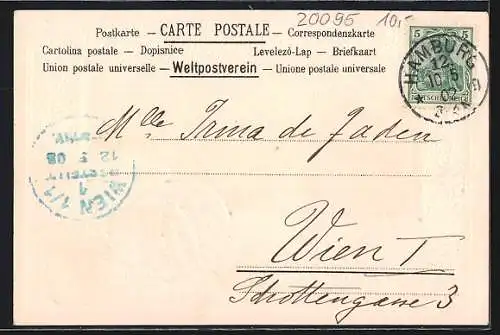 20095 10,-
Postkarte - CARTE POSTALE - Correspondenzkarte
Cartolina postale - Dopisnice Levelezö-Lap - Briefkaart
Union postale universelle - Weltpostverein - Unione postale universale
5 5
HAMBURG
12
10 5
03
DEUTSCHES REICH
Mlle Irma de Jaden
WIEN 1/1
BESTELLT
1
12 5 03
Wien I
Schottengasse 3